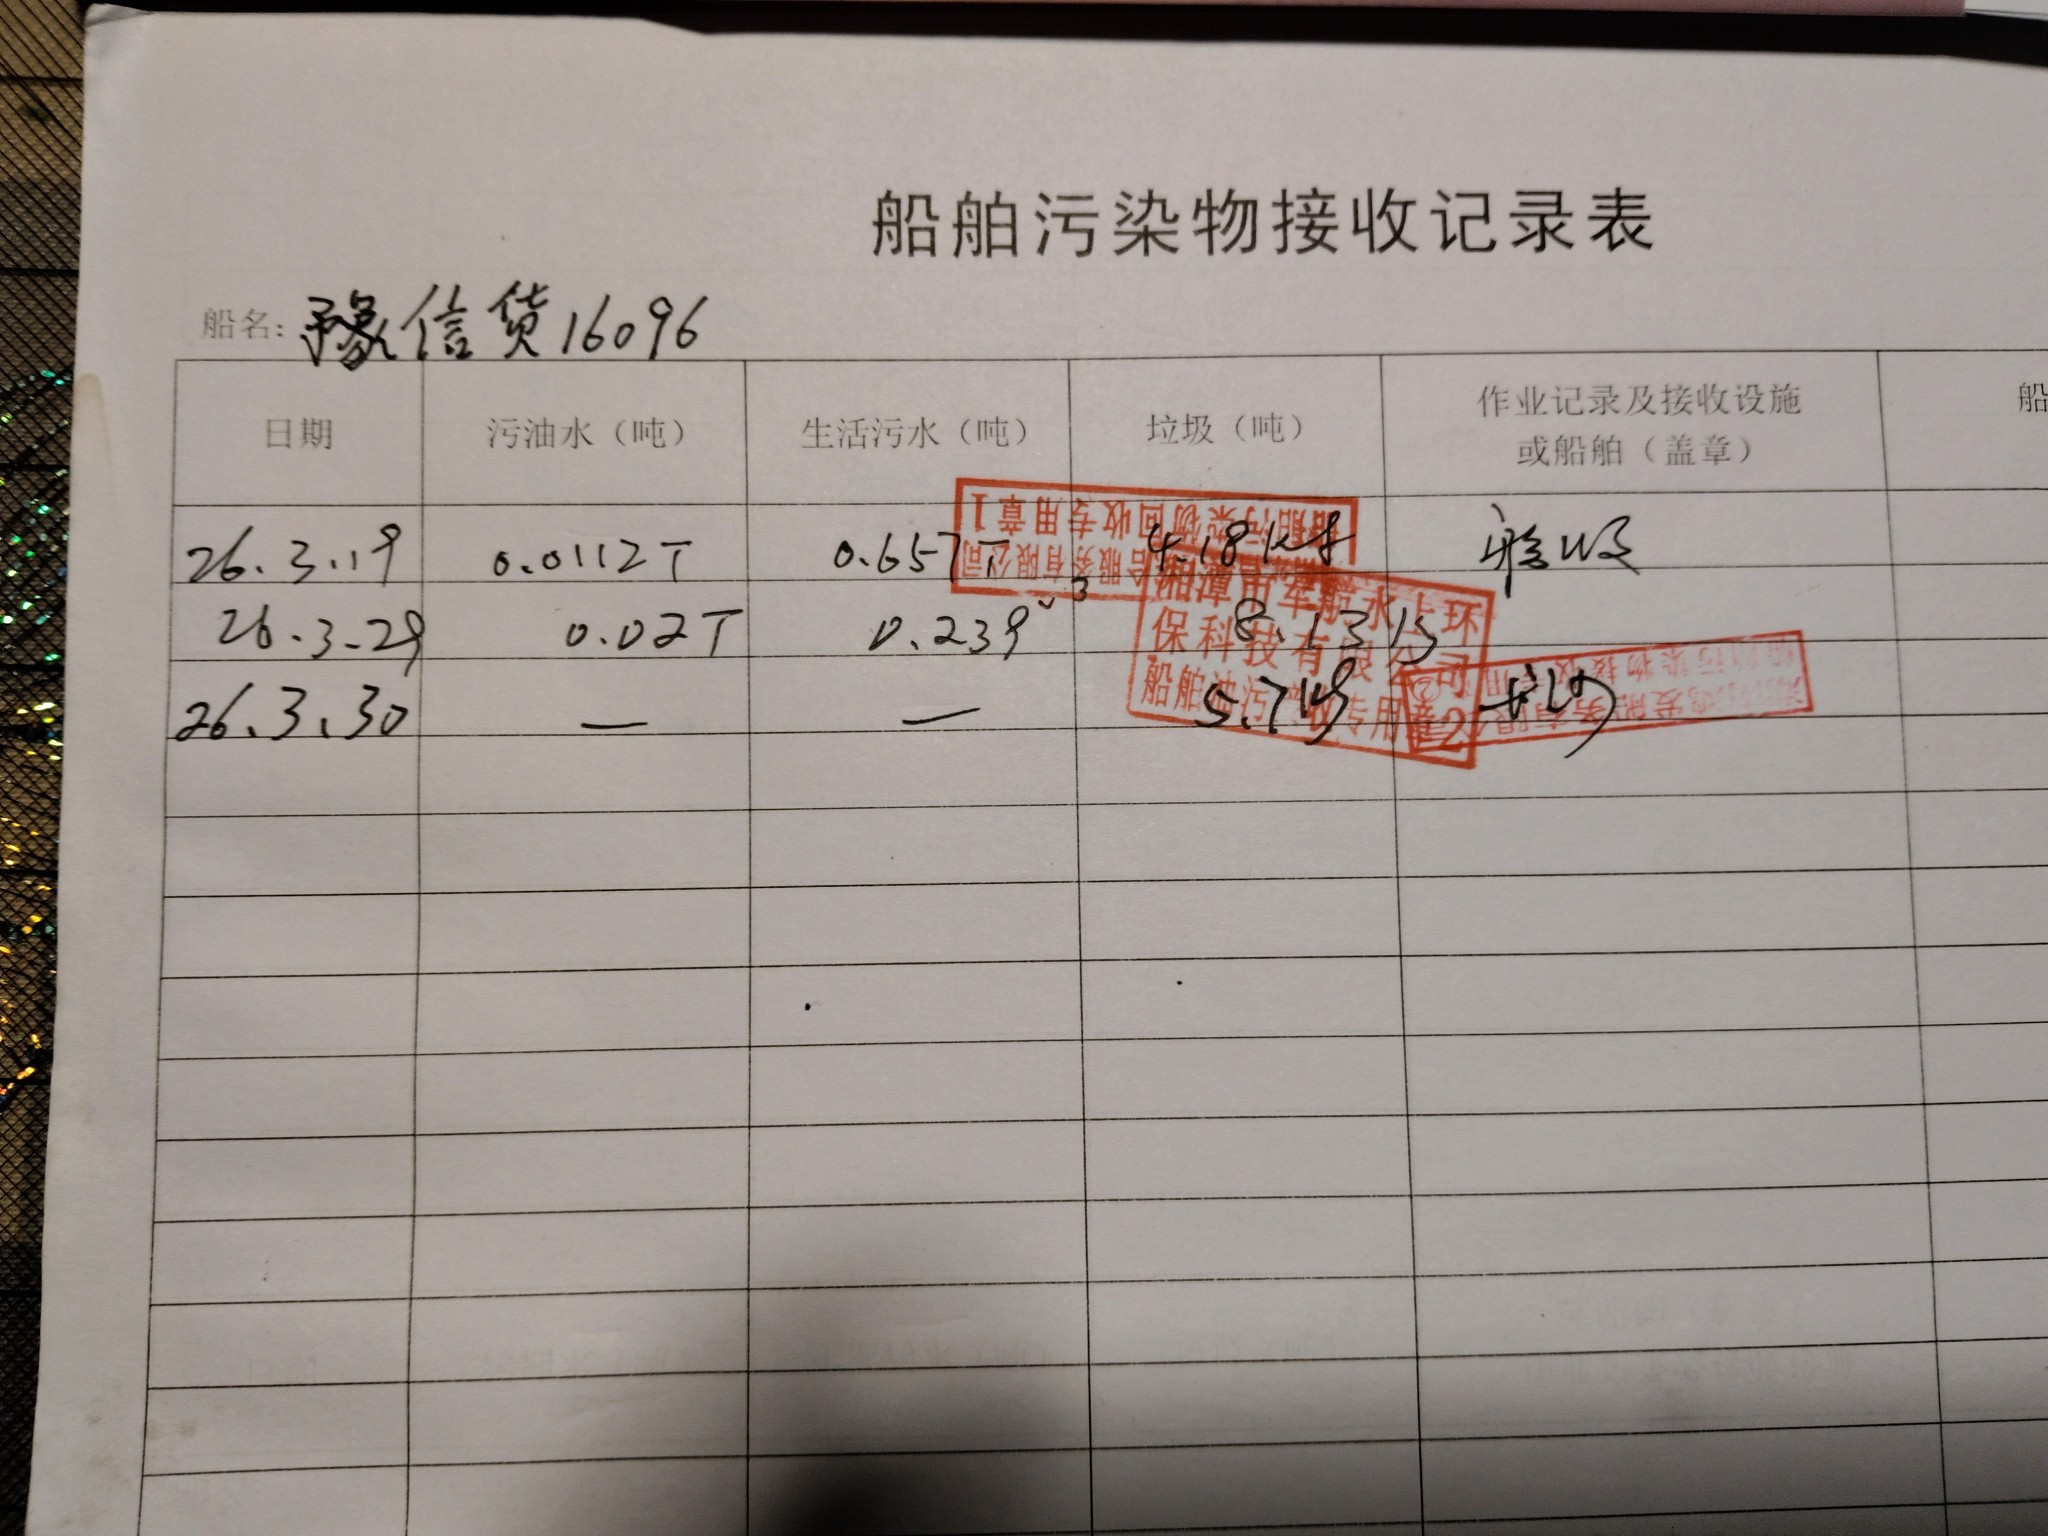 船舶污染物接收记录表
船名: 豫信货16096
日期 污油水（吨） 生活污水（吨） 垃圾（吨） 作业记录及接收设施或船舶（盖章） 船
26.3.19 0.0112T 0.657T 4.18kg 船收
26.3.29 0.02T 0.239 8.13
26.3.30 — — 5.7kg
船舶污染物回收专用章1
服务有限公司
湘潭市 水上环
保科技有限公司
船舶油污 收专用章2
发服务有限公司
船舶污染物接收专用